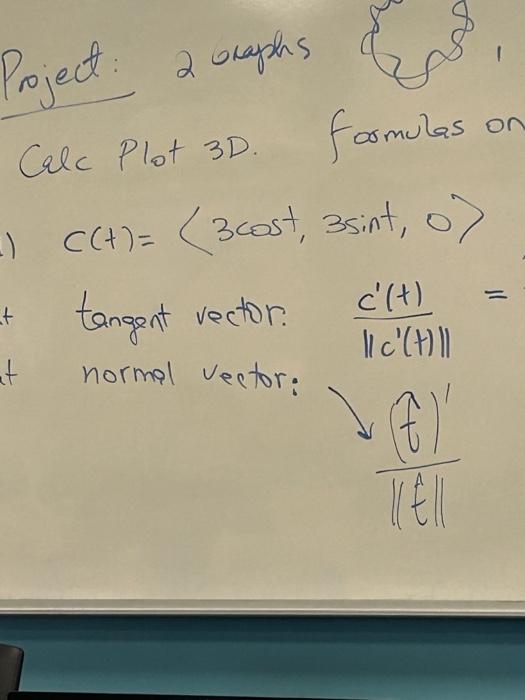 Project: 2 Graphs
Calc Plot 3D. formulas on
) c(t) = ⟨3cost, 3sint, 0⟩
t tangent vector: c'(t) / ||c'(t)|| =
t normal vector: ↘ (t̂)' / ||t̂||